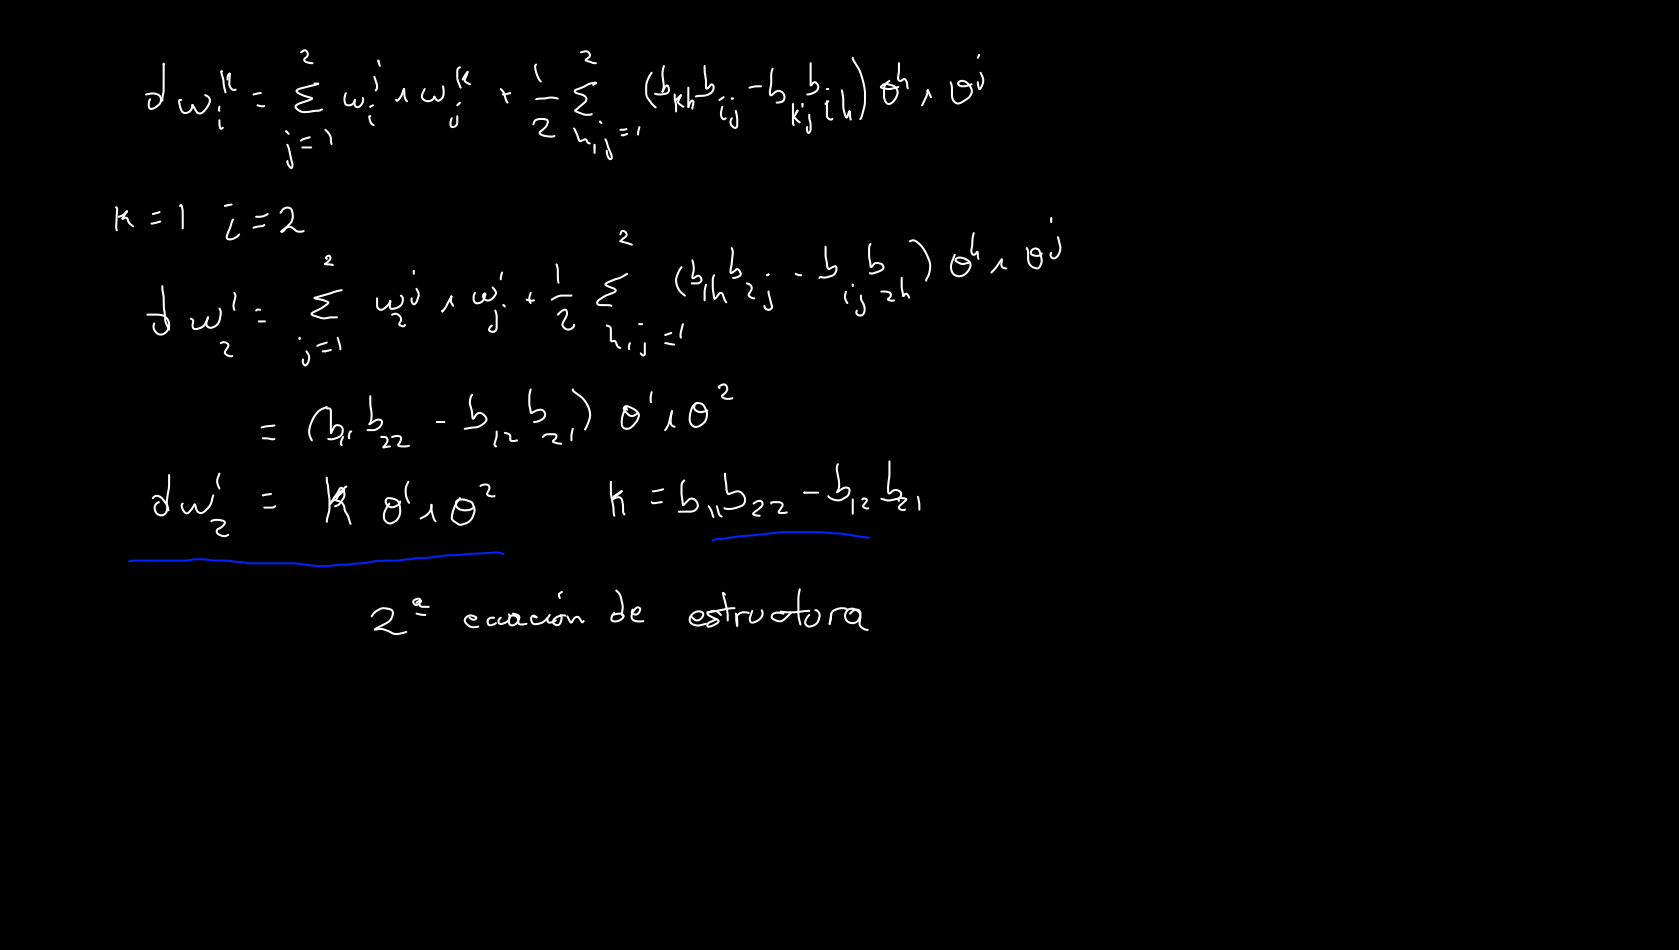 dω_i^k = Σ_{j=1}^2 ω_i^j ∧ ω_j^k + 1/2 Σ_{h,j=1}^2 (b_{kh} b_{ij} - b_{kj} b_{ih}) θ^h ∧ θ^j
k = 1 i = 2
dω_2^1 = Σ_{j=1}^2 ω_2^j ∧ ω_j^1 + 1/2 Σ_{h,j=1}^2 (b_{1h} b_{2j} - b_{1j} b_{2h}) θ^h ∧ θ^j
= (b_{11} b_{22} - b_{12} b_{21}) θ^1 ∧ θ^2
dω_2^1 = K θ^1 ∧ θ^2 K = b_{11} b_{22} - b_{12} b_{21}
2ª ecuación de estructura